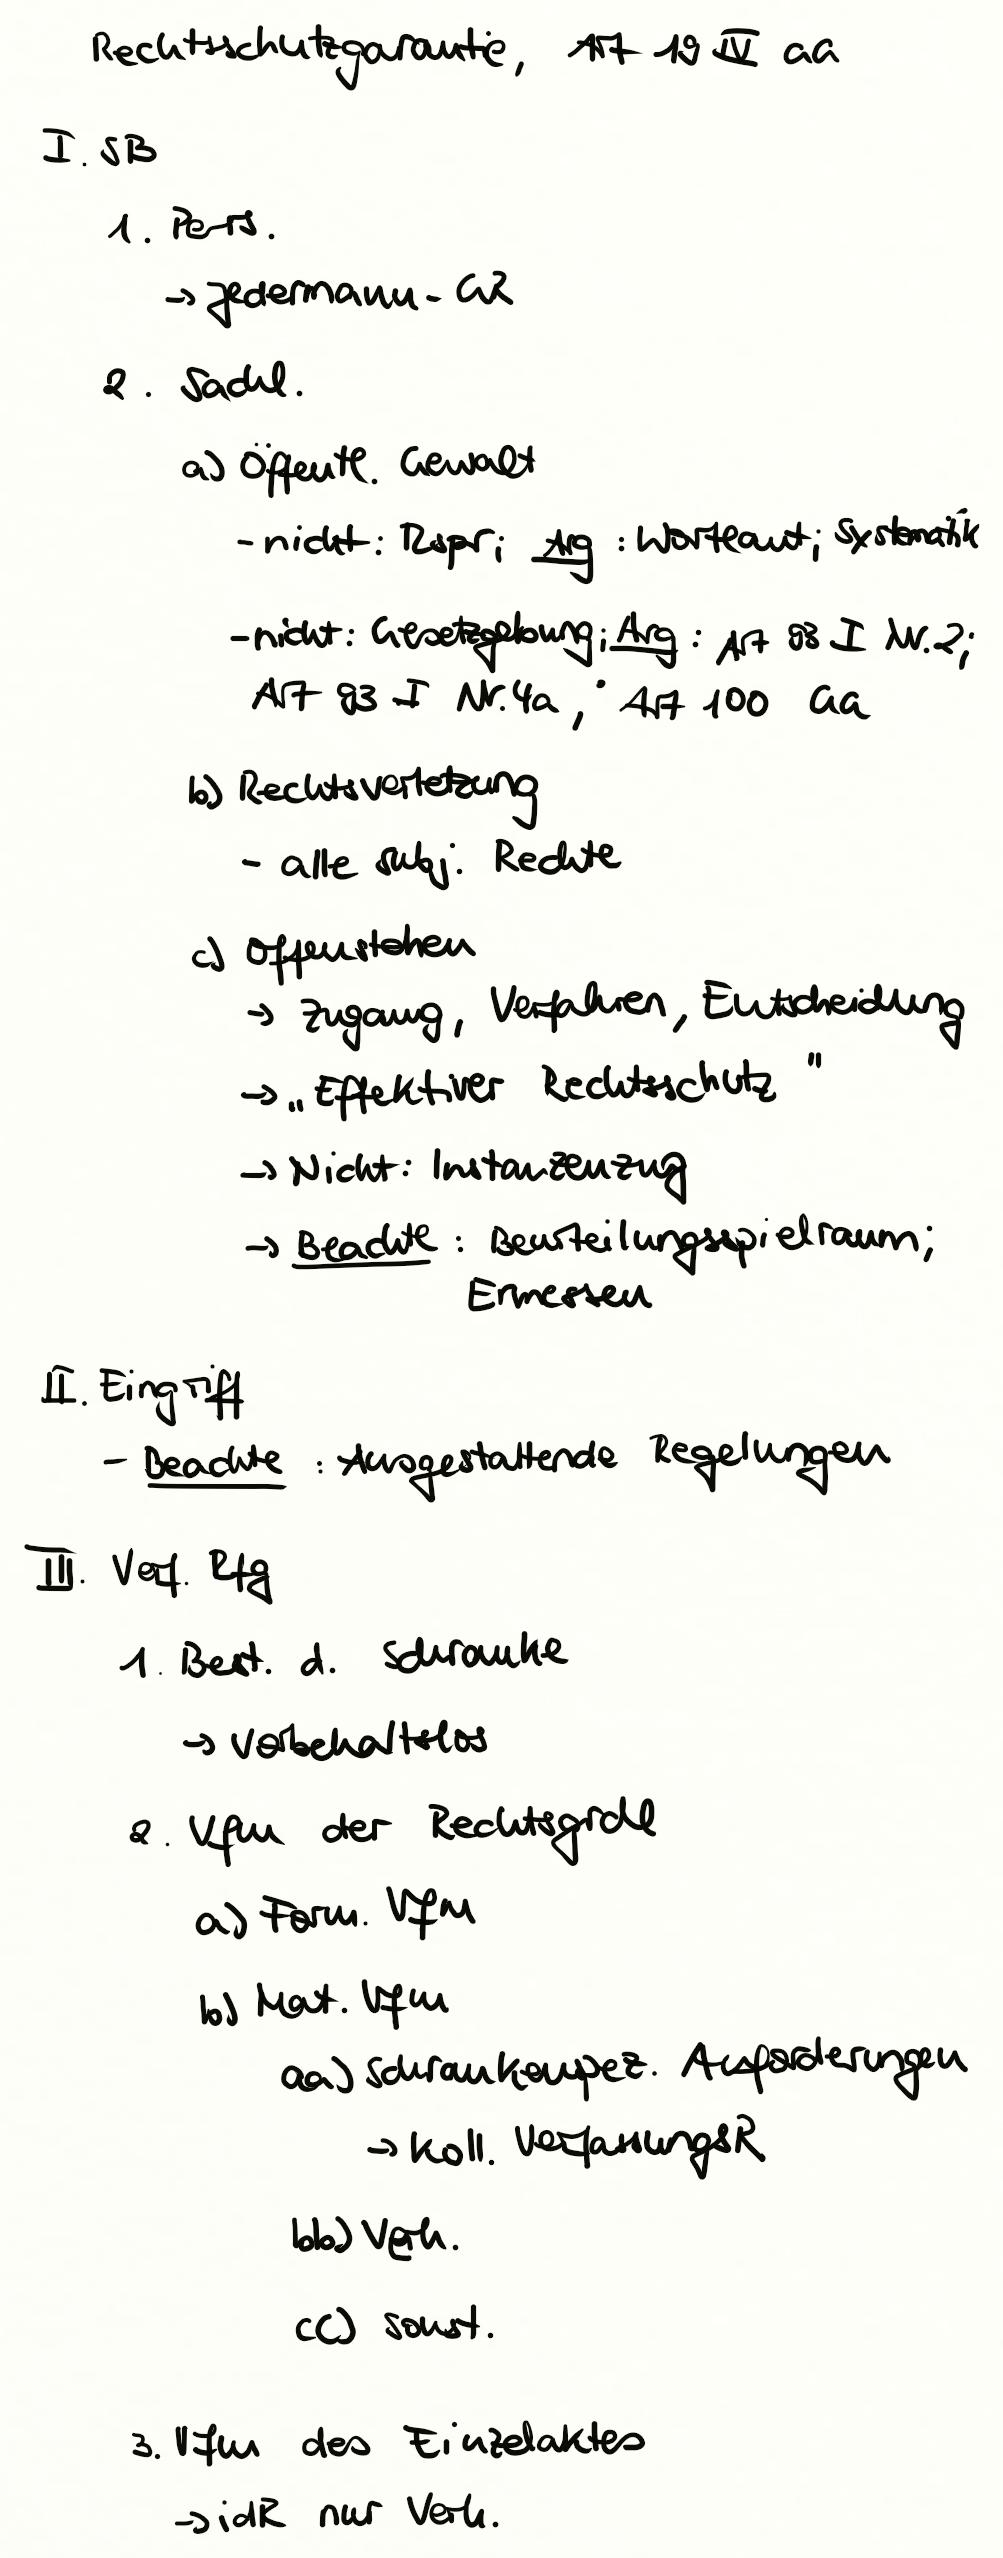 Rechtsschutzgarantie, Art 19 IV GG
I. SB
1. Pers.
→ Jedermann-GR
2. Sachl.
a) Öffentl. Gewalt
- nicht: Rspr; Arg: Wortlaut; Systematik
- nicht: Gesetzgebung; Arg: Art 93 I Nr. 2;
Art 93 I Nr. 4a, Art 100 GG
b) Rechtsverletzung
- alle subj. Rechte
c) Offenstehen
→ Zugang, Verfahren, Entscheidung
→ „Effektiver Rechtsschutz"
→ Nicht: Instanzenzug
→ Beachte: Beurteilungsspielraum;
Ermessen
II. Eingriff
- Beachte: Ausgestaltende Regelungen
III. Verf. Rfg
1. Best. d. Schranke
→ Vorbehaltslos
2. Vfm der Rechtsgrdl
a) Form. Vfm
b) Mat. Vfm
aa) Schrankenspez. Anforderungen
→ Koll. VerfassungsR
bb) Verh.
cc) Sonst.
3. Vfm des Einzelaktes
→ idR nur Verh.